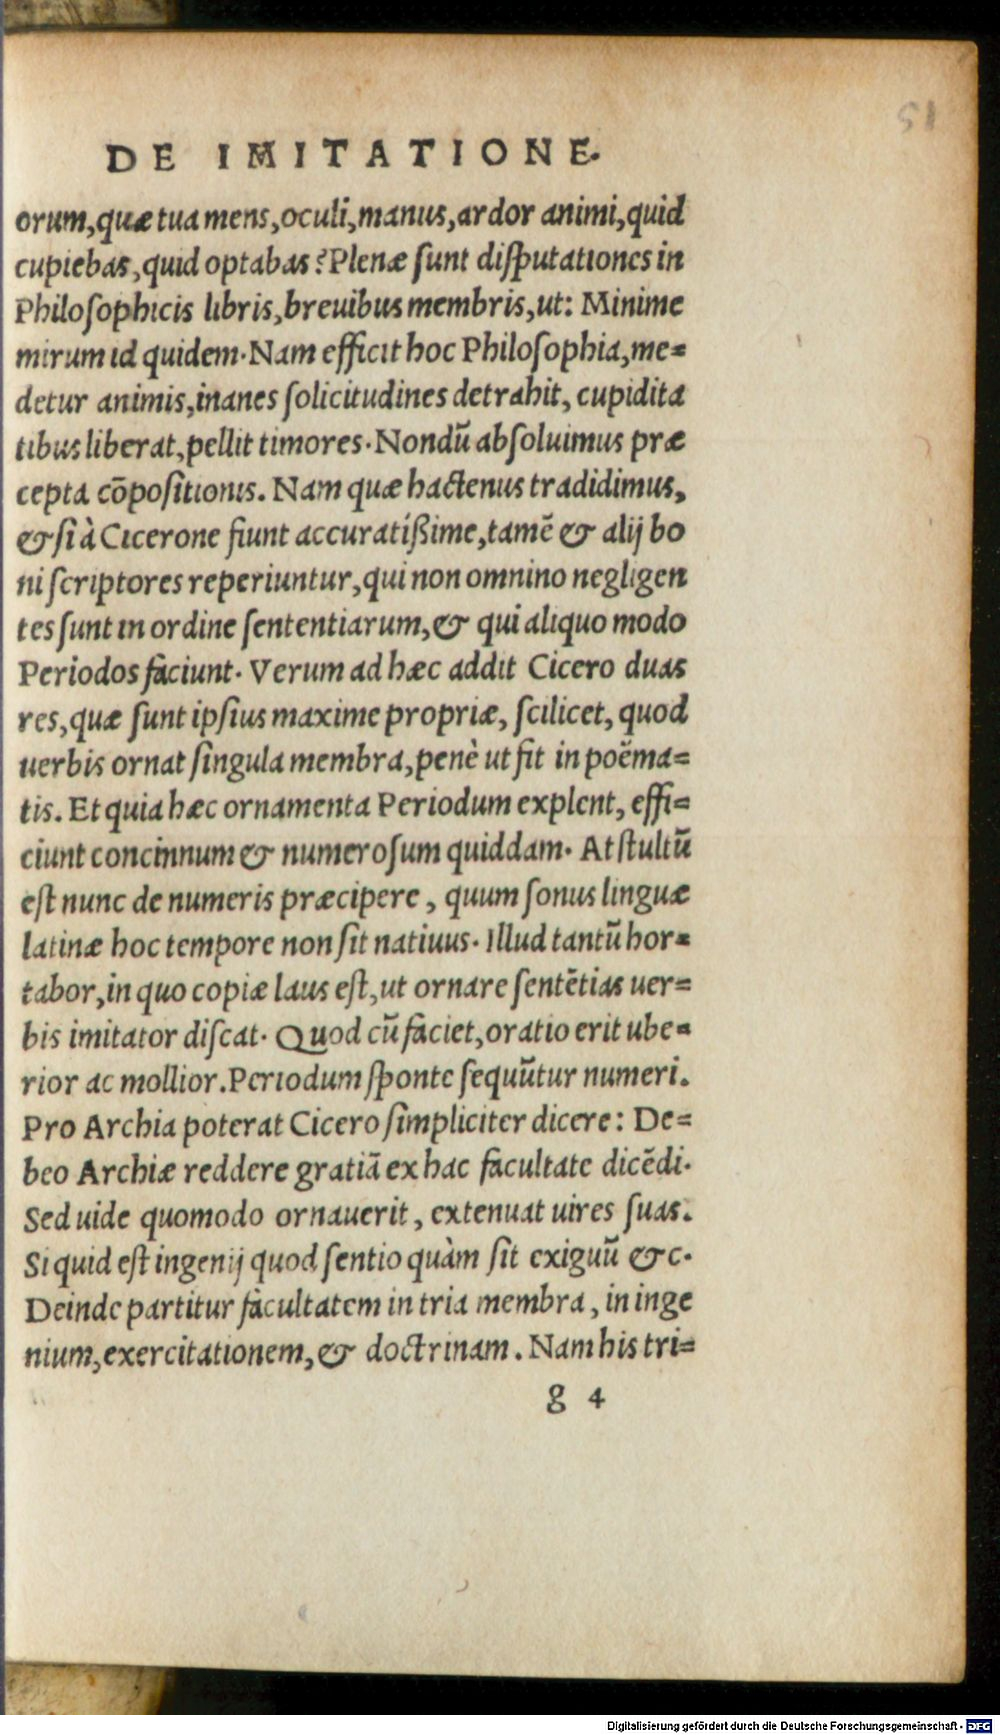 51
DE IMITATIONE.
orum, quæ tua mens, oculi, manus, ardor animi, quid
cupiebas, quid optabas? Plenæ ſunt diſputationes in
Philoſophicis libris, breuibus membris, ut: Minime
mirum id quidem. Nam efficit hoc Philoſophia, me=
detur animis, inanes ſolicitudines detrahit, cupidita
tibus liberat, pellit timores. Nondū abſoluimus præ
cepta cōpoſitionis. Nam quæ hactenus tradidimus,
& ſi à Cicerone fiunt accuratißime, tamē & alij bo
ni ſcriptores reperiuntur, qui non omnino negligen
tes ſunt in ordine ſententiarum, & qui aliquo modo
Periodos faciunt. Verum ad hæc addit Cicero duas
res, quæ ſunt ipſius maxime propriæ, ſcilicet, quod
uerbis ornat ſingula membra, penè ut fit in poëma=
tis. Et quia hæc ornamenta Periodum explent, effi=
ciunt concinnum & numeroſum quiddam. At ſtultū
eſt nunc de numeris præcipere, quum ſonus linguæ
latinæ hoc tempore non ſit natiuus. Illud tantū hor=
tabor, in quo copiæ laus eſt, ut ornare ſentētias uer=
bis imitator diſcat. Quod cū faciet, oratio erit ube=
rior ac mollior. Periodum ſponte ſequūtur numeri.
Pro Archia poterat Cicero ſimpliciter dicere: De=
beo Archiæ reddere gratiā ex hac facultate dicēdi.
Sed uide quomodo ornauerit, extenuat uires ſuas.
Si quid eſt ingenij quod ſentio quàm ſit exiguū &c.
Deinde partitur facultatem in tria membra, in inge
nium, exercitationem, & doctrinam. Nam his tri=
g 4
Digitalisierung gefördert durch die Deutsche Forschungsgemeinschaft - DFG